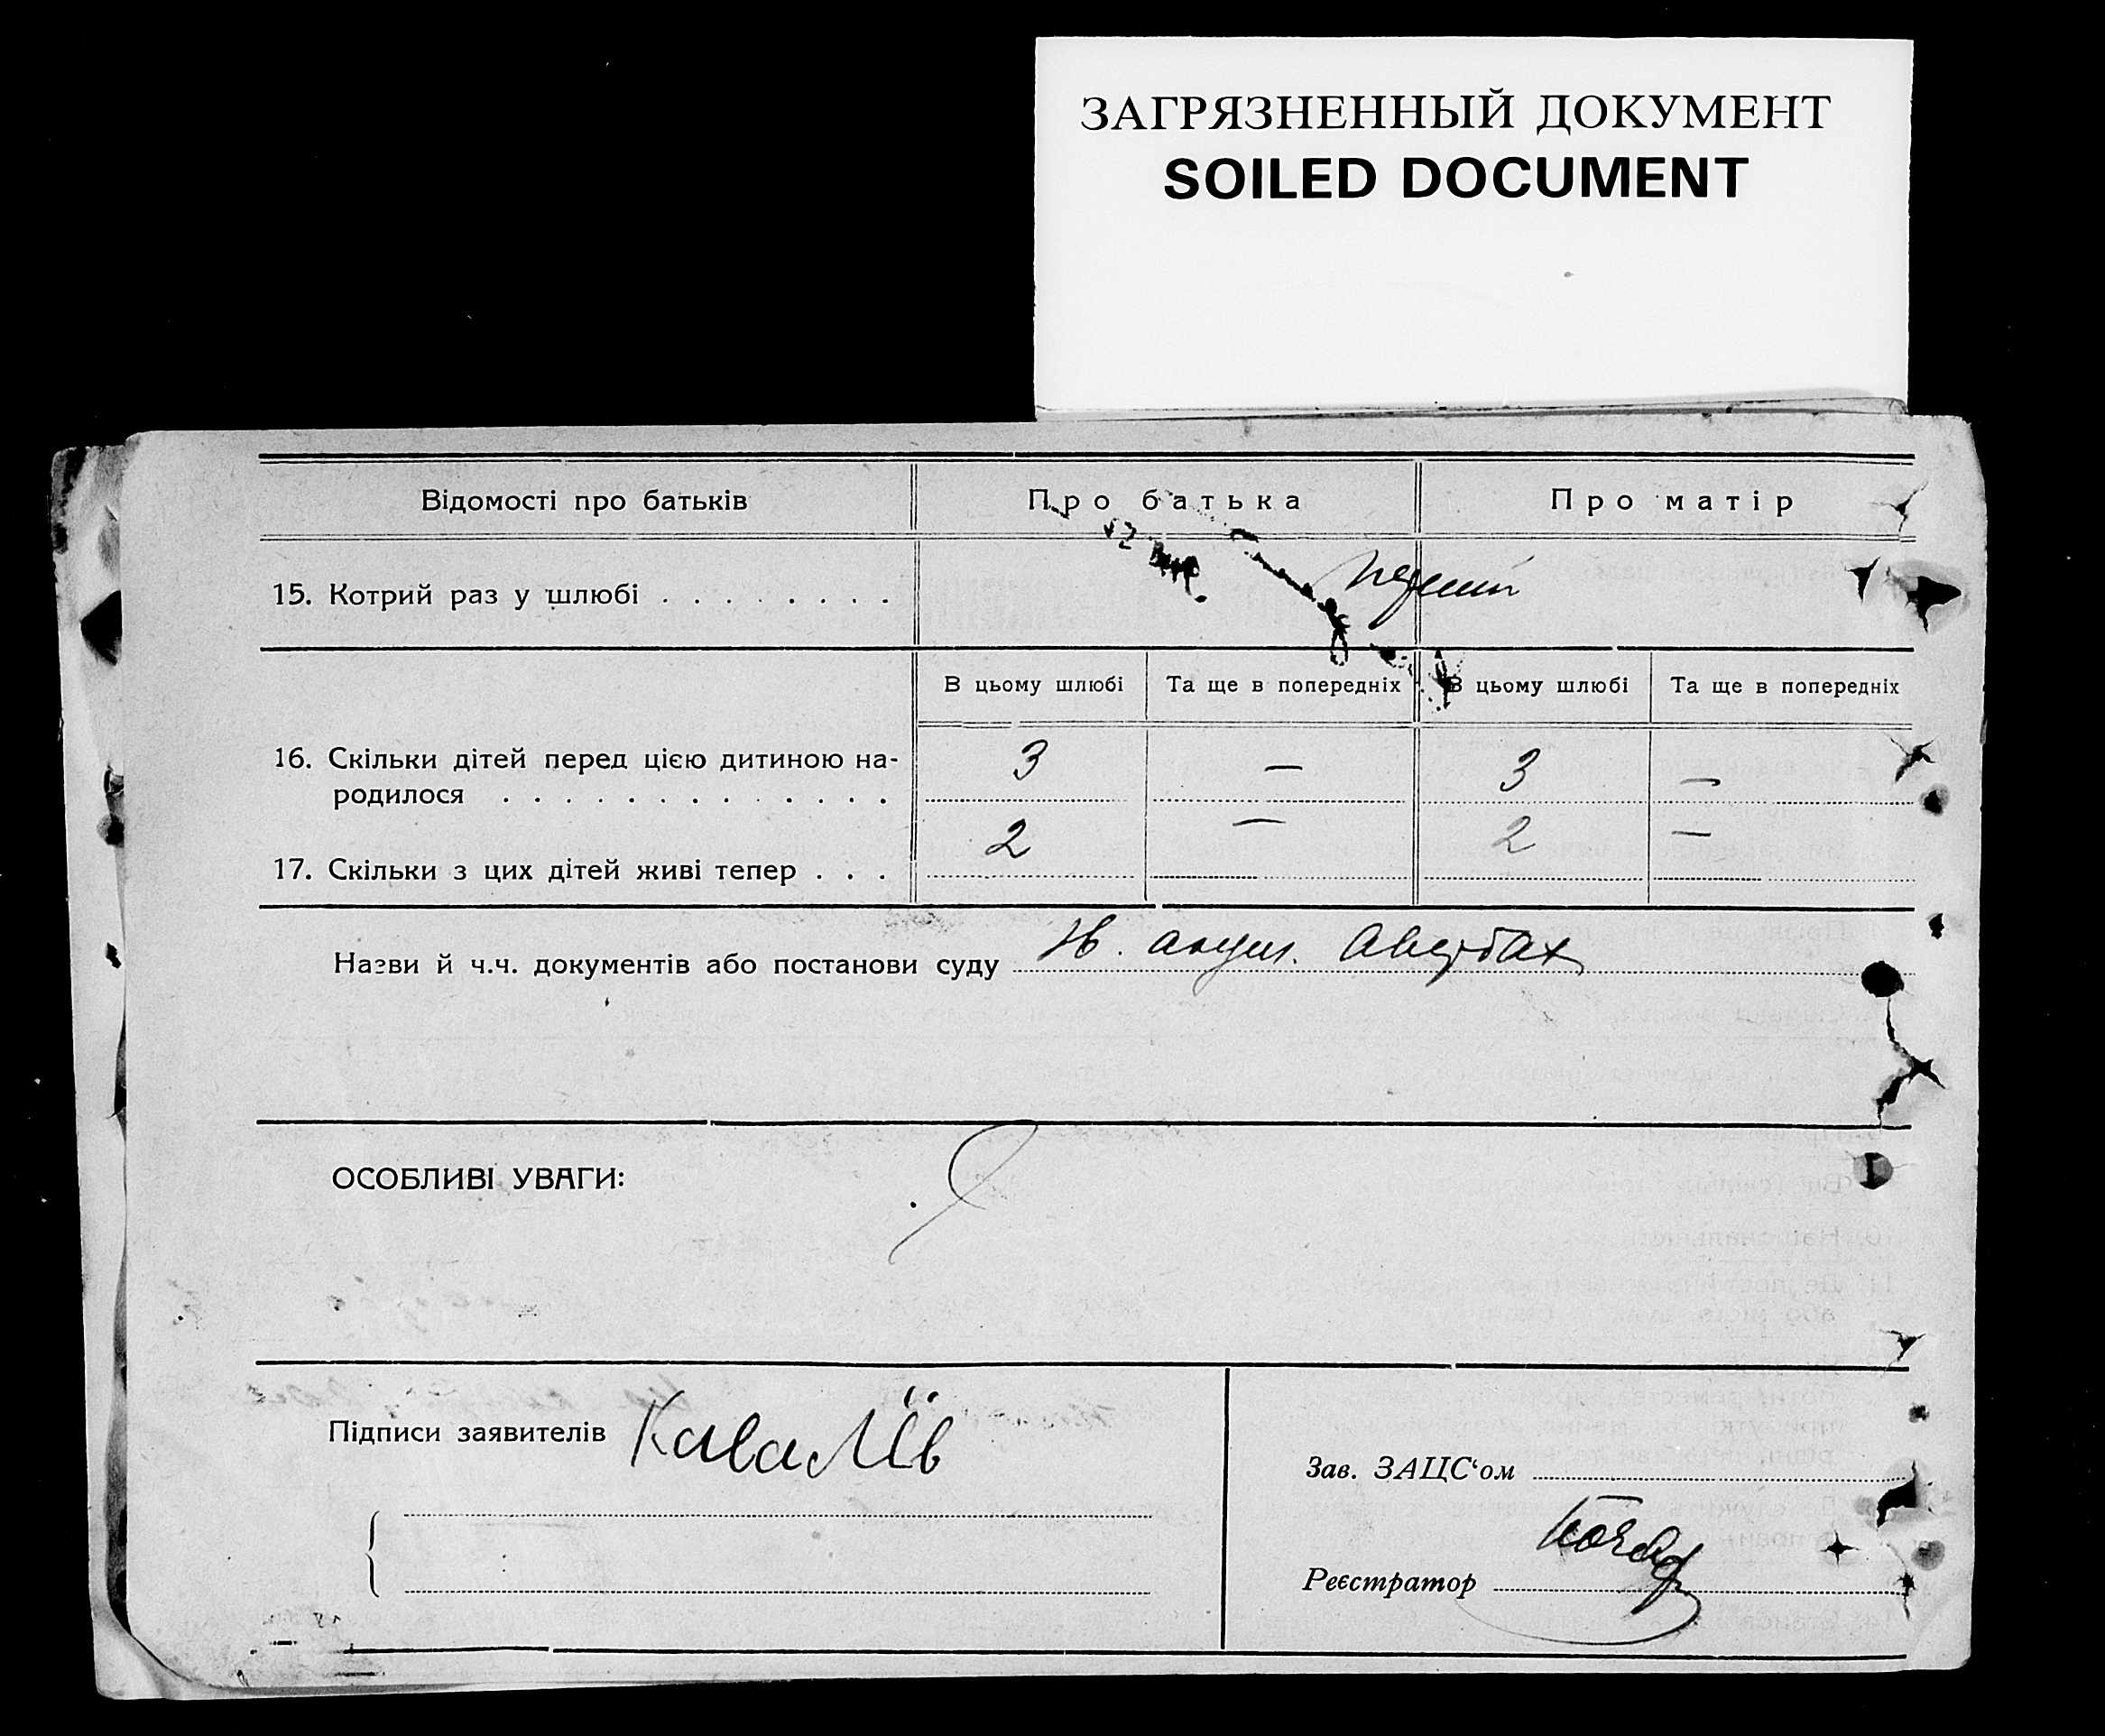 ЗАГРЯЗНЕННЫЙ ДОКУМЕНТ
SOILED DOCUMENT
Відомості про батьків Про батька Про матір
15. Котрий раз у шлюбі . . . . . . . . перший
В цьому шлюбі Та ще в попередніх В цьому шлюбі Та ще в попередніх
16. Скільки дітей перед цією дитиною на-
родилося . . . . . . . . . . . . . 3 — 3 —
17. Скільки з цих дітей живі тепер . . . 2 — 2 —
Назви й ч.ч. документів або постанови суду
ОСОБЛИВІ УВАГИ:
Підписи заявителів
Зав. ЗАЦС‘ом
Реєстратор